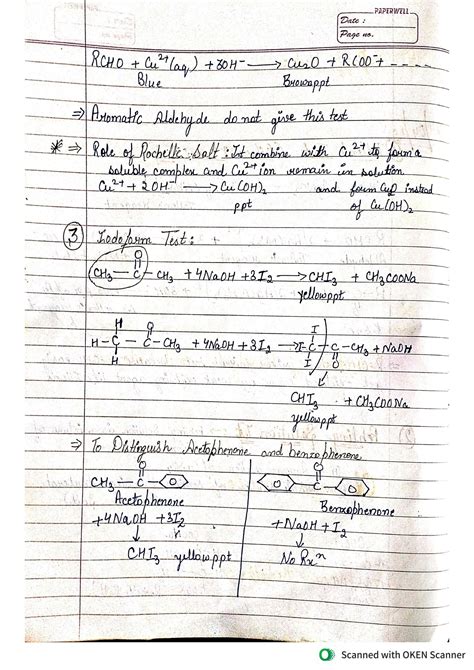 PAPERWELL
Date :
Page no.
RCHO + Cu²⁺(aq) + 3OH⁻ ⟶ Cu₂O + RCOO⁻ + ----
Blue Brownppt
⇒ Aromatic Aldehyde do not give this test
* ⇒ Role of Rochelle Salt : It combine with Cu²⁺ to form a
soluble complex and Cu²⁺ ion remain in solution
Cu²⁺ + 2OH⁻ ⟶ Cu(OH)₂ and form instead
ppt of Cu(OH)₂
③ Iodoform Test :
O
CH₃ — C — CH₃ + 4NaOH + 3I₂ ⟶ CHI₃ + CH₃COONa
yellowppt
H O I
H - C - C - CH₃ + 4NaOH + 3I₂ ⟶ I - C - C - CH₃ + NaOH
H I O
CHI₃ + CH₃COONa
yellowppt
⇒ To Distinguish Acetophenone and benzophenone
O O
CH₃ — C — C —
Acetophenone Benzophenone
+4NaOH + 3I₂ + NaOH + I₂
CHI₃ yellowppt No Rxⁿ
Scanned with OKEN Scanner